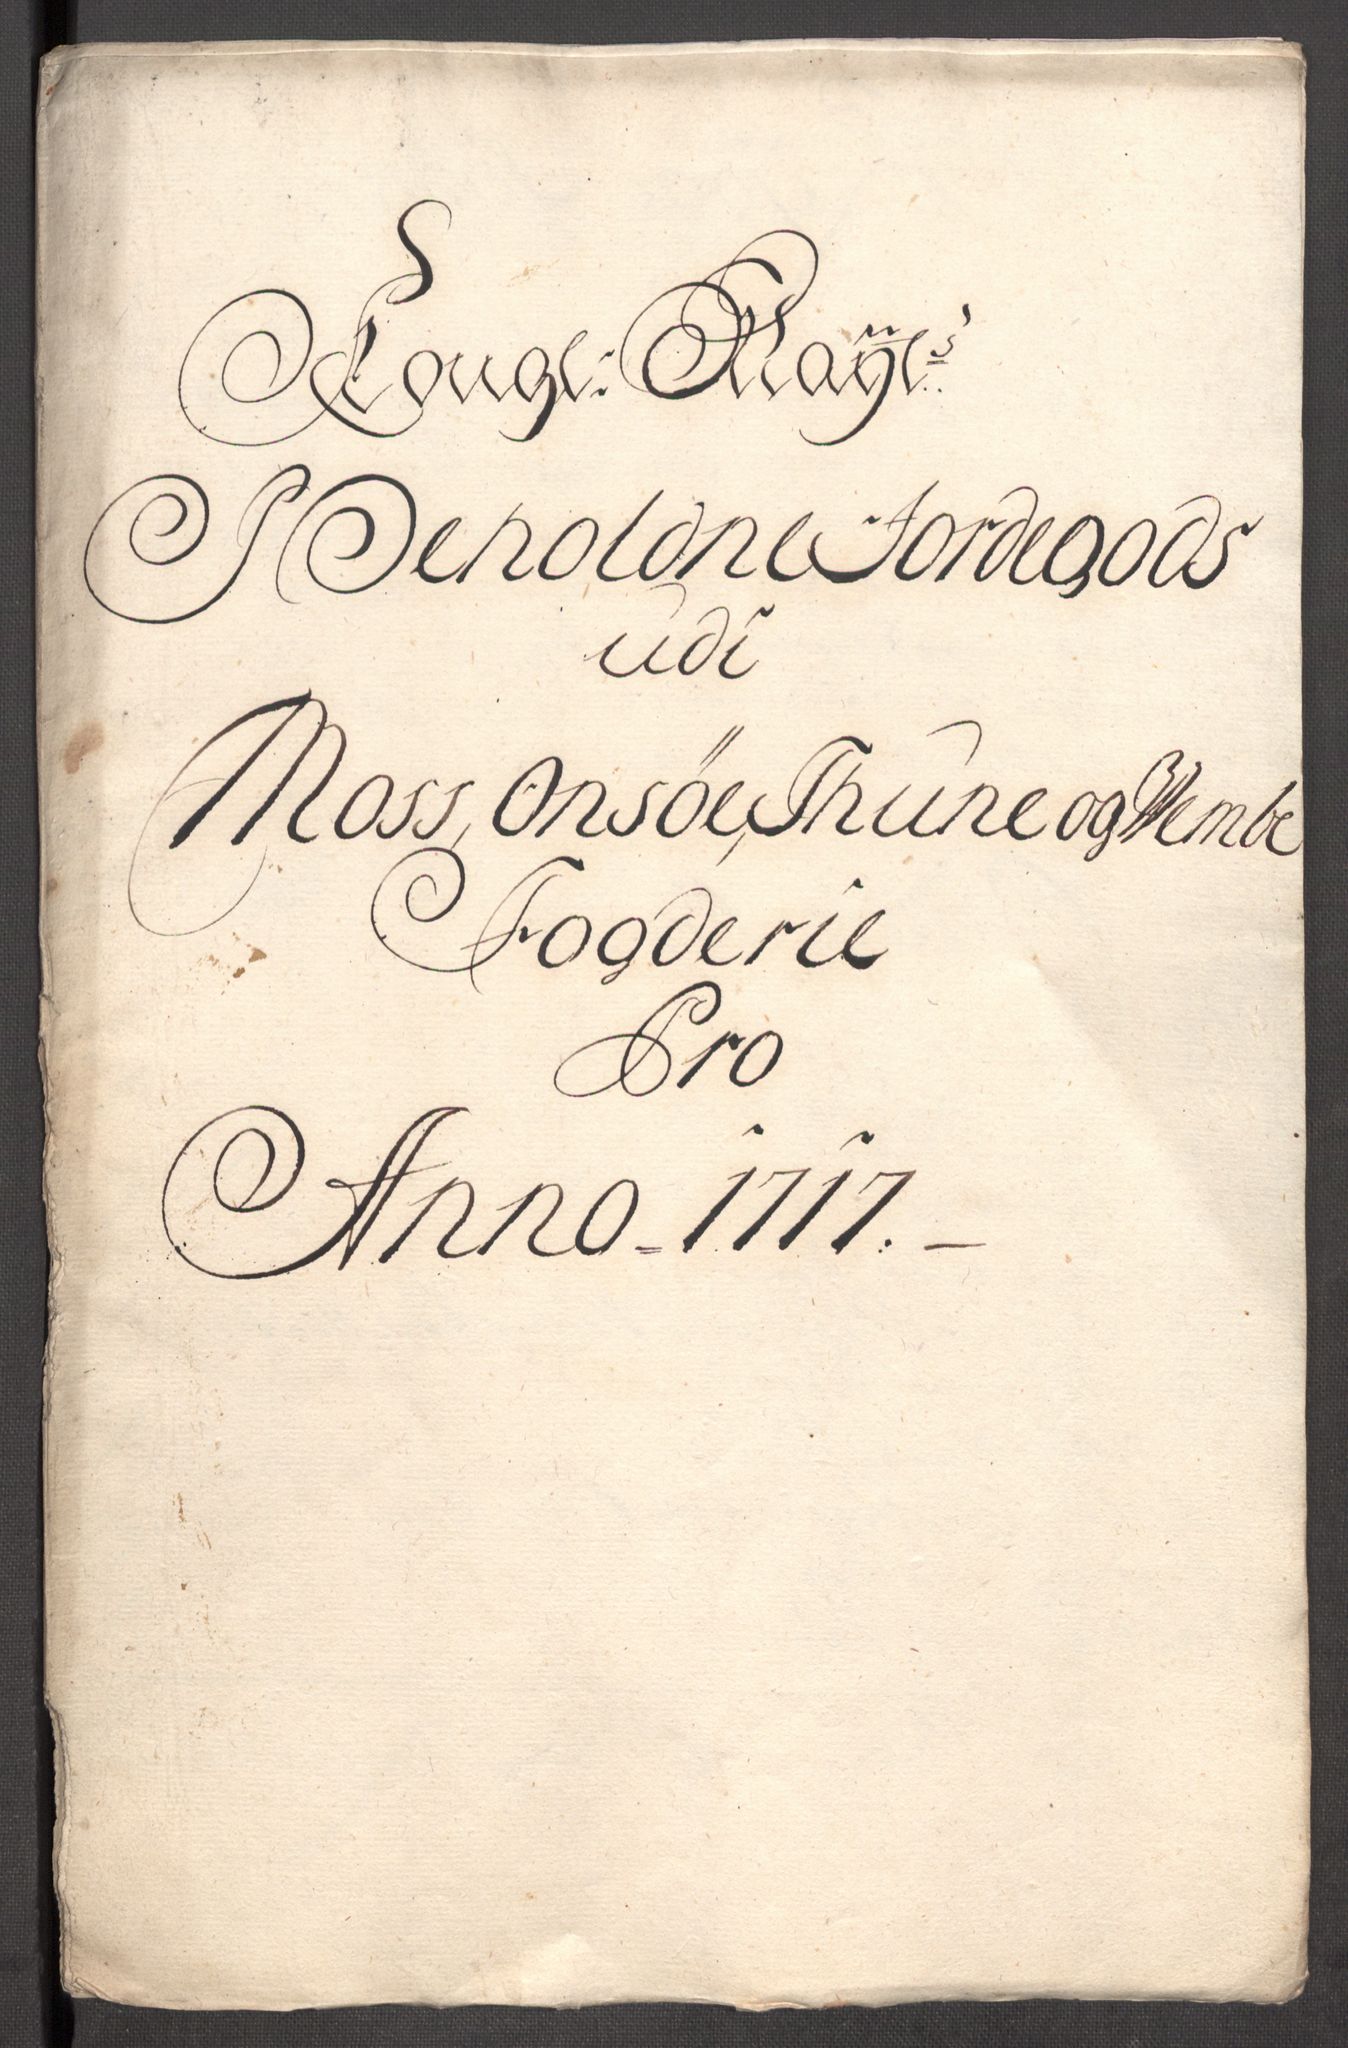 Kongl: Mayts
Beholdne Jordegods
udi
Moss, Onsöe, Thune og Wembe
Fogderie
Pro
Anno = 1717. —